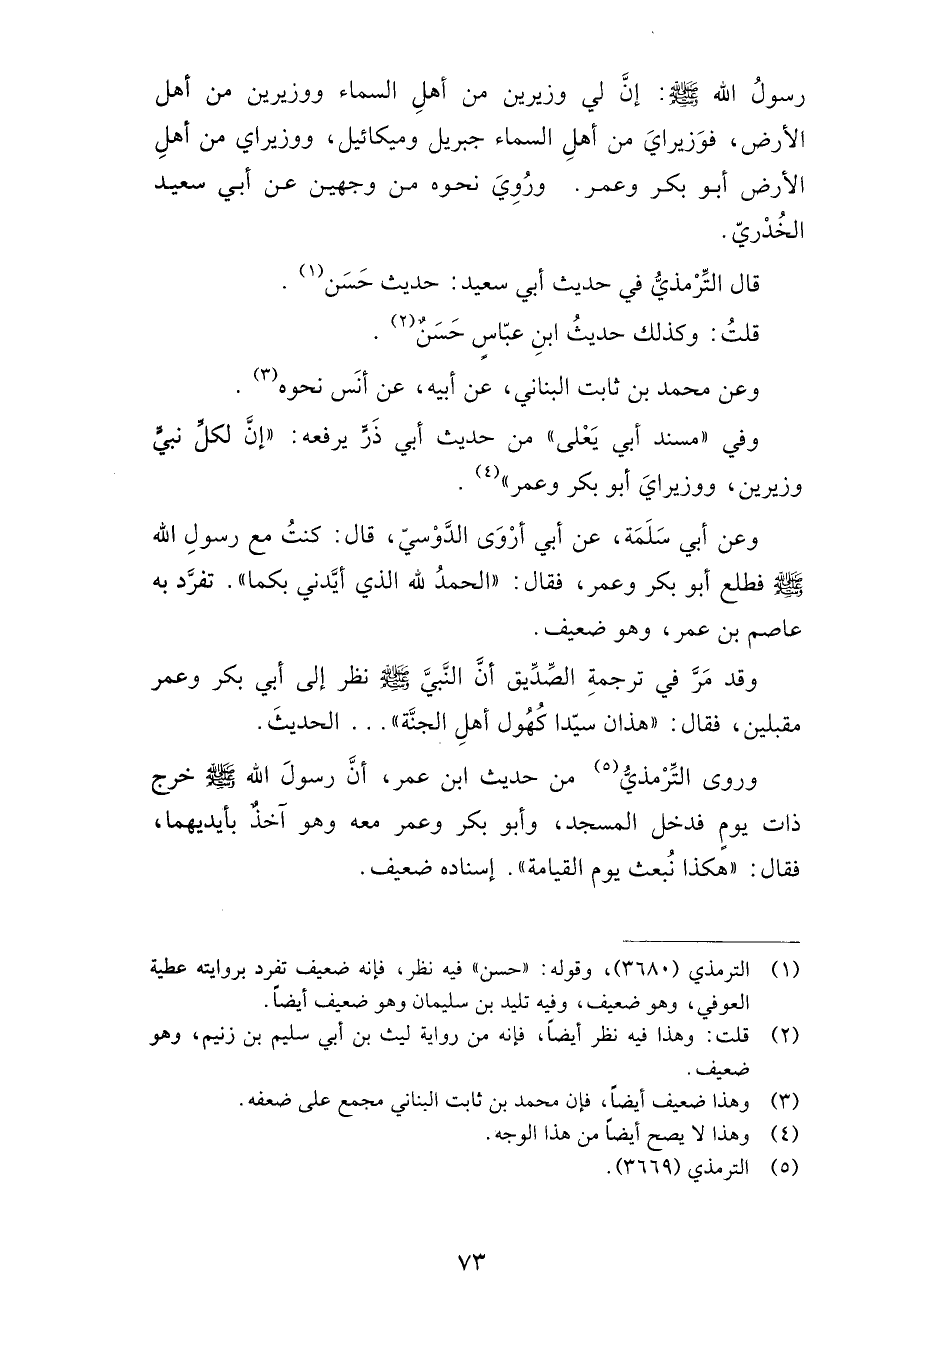 رسولُ الله ﷺ: إنَّ لي وزيرين من أهلِ السماء ووزيرين من أهل
الأرض، فوَزيرايَ من أهلِ السماء جبريل وميكائيل، ووزيراي من أهلِ
الأرض أبو بكر وعمر. ورُوِيَ نحوه من وجهين عن أبي سعيد
الخُدْريّ.
قال التِّرْمذيُّ في حديث أبي سعيد: حديث حَسَن(١).
قلتُ: وكذلك حديثُ ابنِ عبّاسٍ حَسَنٌ(٢).
وعن محمد بن ثابت البناني، عن أبيه، عن أنَس نحوه(٣).
وفي «مسند أبي يَعْلى» من حديث أبي ذَرٍّ يرفعه: «إنَّ لكلِّ نبيٍّ
وزيرين، ووزيرايَ أبو بكر وعمر»(٤).
وعن أبي سَلَمَة، عن أبي أرْوَى الدَّوْسيّ، قال: كنتُ مع رسولِ الله
ﷺ فطلع أبو بكر وعمر، فقال: «الحمدُ لله الذي أيَّدني بكما». تفرَّد به
عاصم بن عمر، وهو ضعيف.
وقد مَرَّ في ترجمةِ الصِّدِّيق أنَّ النَّبيَّ ﷺ نظر إلى أبي بكر وعمر
مقبلين، فقال: «هذان سيّدا كُهُول أهلِ الجنَّة»... الحديثَ.
وروى التِّرْمذيُّ(٥) من حديث ابن عمر، أنَّ رسولَ الله ﷺ خرج
ذات يومٍ فدخل المسجد، وأبو بكر وعمر معه وهو آخذٌ بأيديهما،
فقال: «هكذا نُبعث يوم القيامة». إسناده ضعيف.
(١) الترمذي (٣٦٨٠)، وقوله: «حسن» فيه نظر، فإنه ضعيف تفرد بروايته عطية
العوفي، وهو ضعيف، وفيه تليد بن سليمان وهو ضعيف أيضاً.
(٢) قلت: وهذا فيه نظر أيضاً، فإنه من رواية ليث بن أبي سليم بن زنيم، وهو
ضعيف.
(٣) وهذا ضعيف أيضاً، فإن محمد بن ثابت البناني مجمع على ضعفه.
(٤) وهذا لا يصح أيضاً من هذا الوجه.
(٥) الترمذي (٣٦٦٩).
٧٣